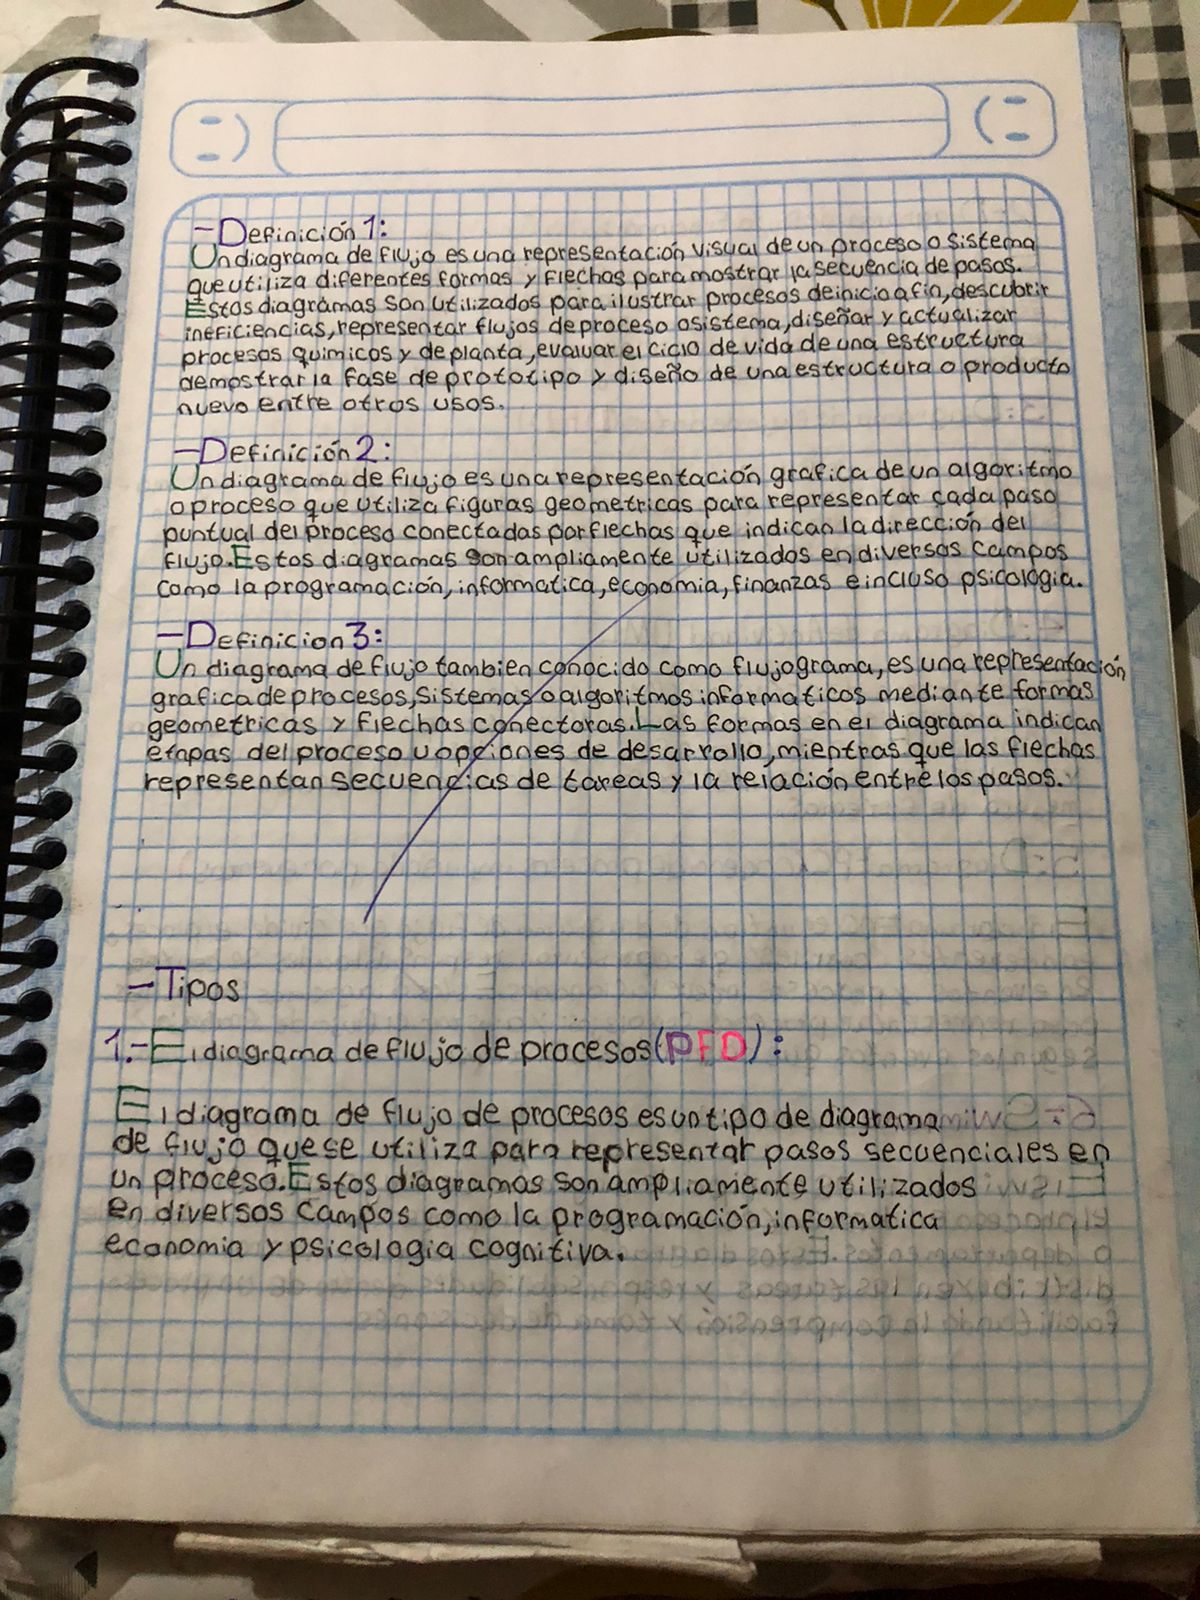 -Definición 1:
Un diagrama de flujo es una representación visual de un proceso o sistema
que utiliza diferentes formas y flechas para mostrar la secuencia de pasos.
Estos diagramas son utilizados para ilustrar procesos de inicio a fin, descubrir
ineficiencias, representar flujos de proceso o sistema, diseñar y actualizar
procesos quimicos y de planta, evaluar el ciclo de vida de una estructura
demostrar la fase de prototipo y diseño de una estructura o producto
nuevo entre otros usos.
-Definición 2:
Un diagrama de flujo es una representación grafica de un algoritmo
o proceso que utiliza figuras geometricas para representar cada paso
puntual del proceso conectadas por flechas que indican la dirección del
flujo. Estos diagramas son ampliamente utilizados en diversos campos
como la programación, informatica, economia, finanzas e incluso psicologia.
-Definicion 3:
Un diagrama de flujo tambien conocido como flujograma, es una representación
grafica de procesos, sistemas o algoritmos informaticos mediante formas
geometricas y flechas conectoras. Las formas en el diagrama indican
etapas del proceso u opciones de desarrollo, mientras que las flechas
representan secuencias de tareas y la relación entre los pasos.
-Tipos
1.- El diagrama de flujo de procesos (PFD):
El diagrama de flujo de procesos es un tipo de diagrama
de flujo que se utiliza para representar pasos secuenciales en
un proceso. Estos diagramas son ampliamente utilizados
en diversos campos como la programación, informatica
economia y psicologia cognitiva.